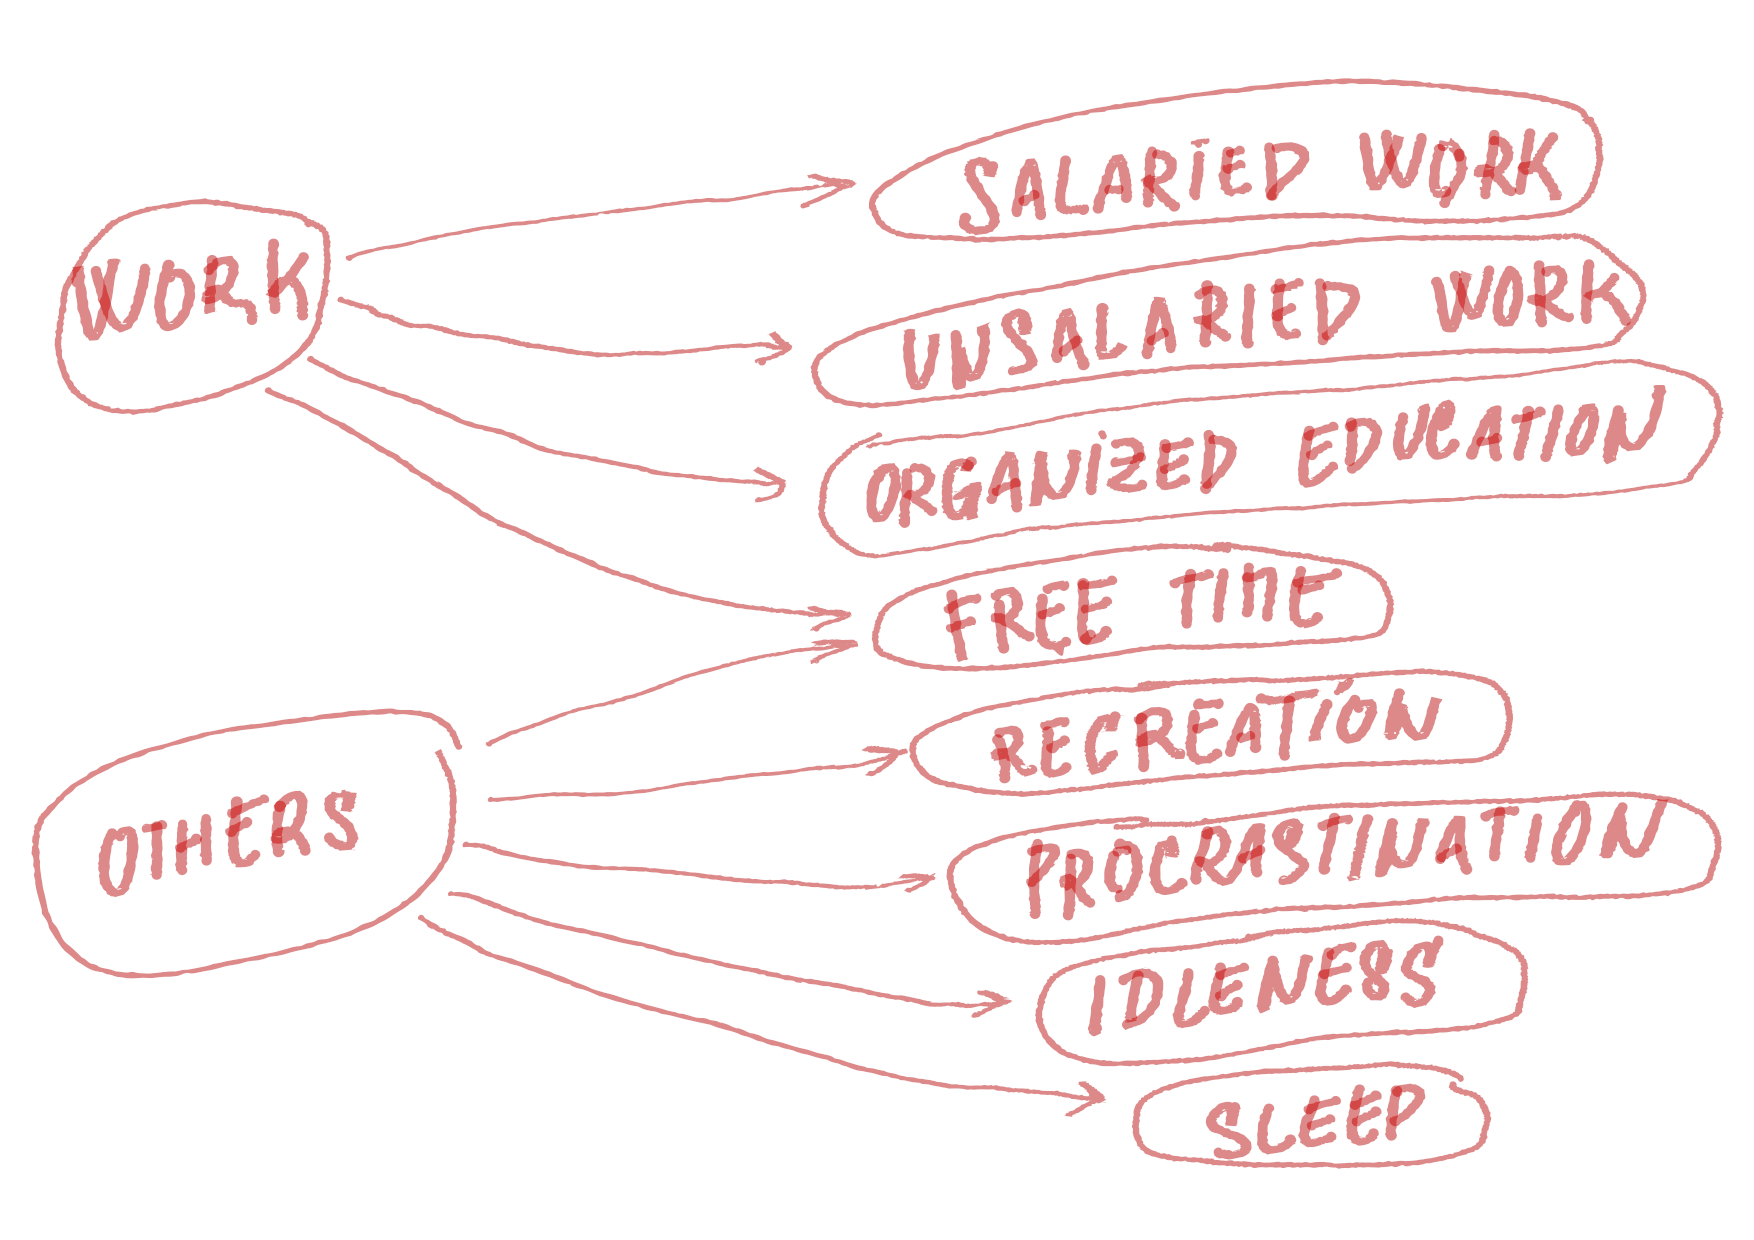 WORK
OTHERS
SALARIED WORK
UNSALARIED WORK
ORGANIZED EDUCATION
FREE TIME
RECREATION
PROCRASTINATION
IDLENESS
SLEEP